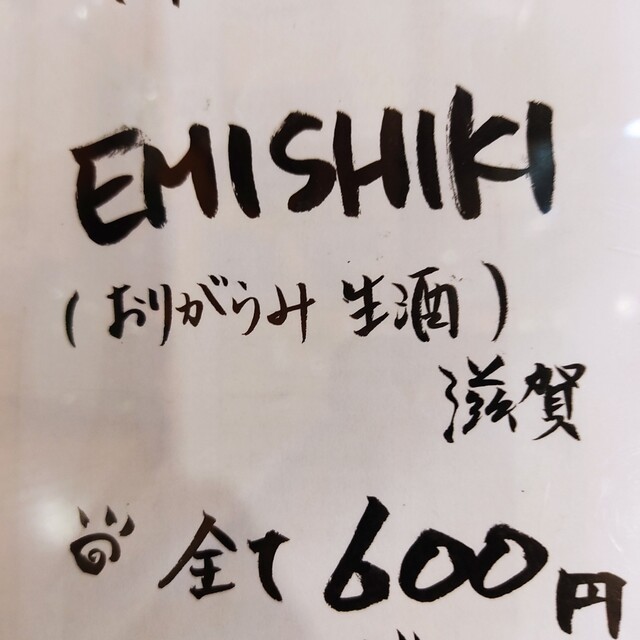 EMISHIKI
(おりがらみ 生酒)
滋賀
全て 600円